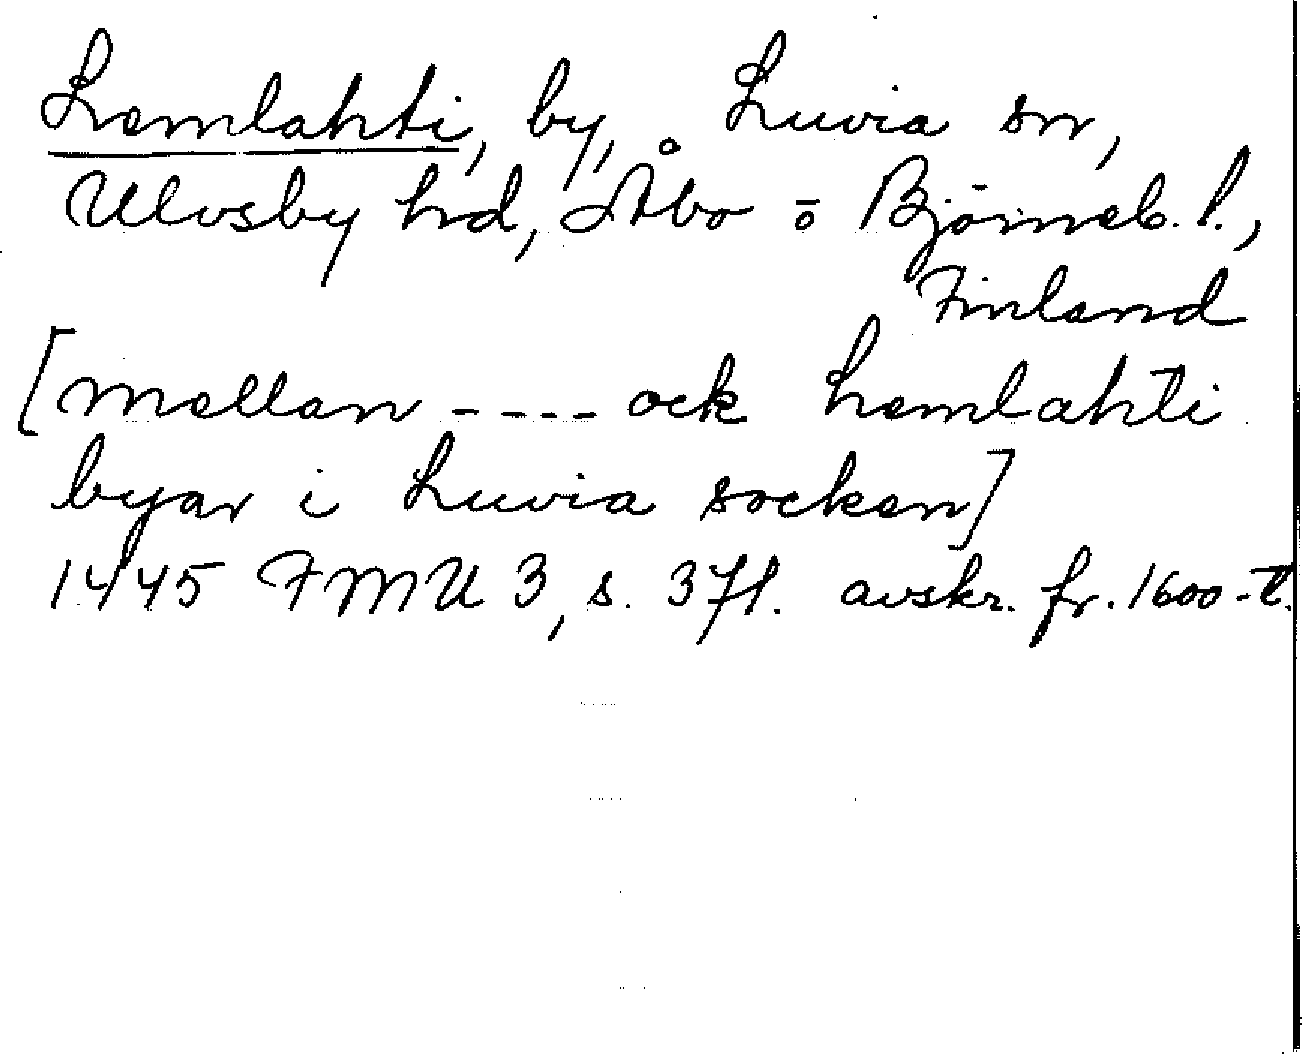 Lemlahti, by, Luvia sn,
Ulvsby hd, Åbo o Björneb. l.,
Finland
[mellan ---- ock Lemlahti
byar i Luvia socken]
1445 FMU 3, s. 371. avskr. fr. 1600-t.